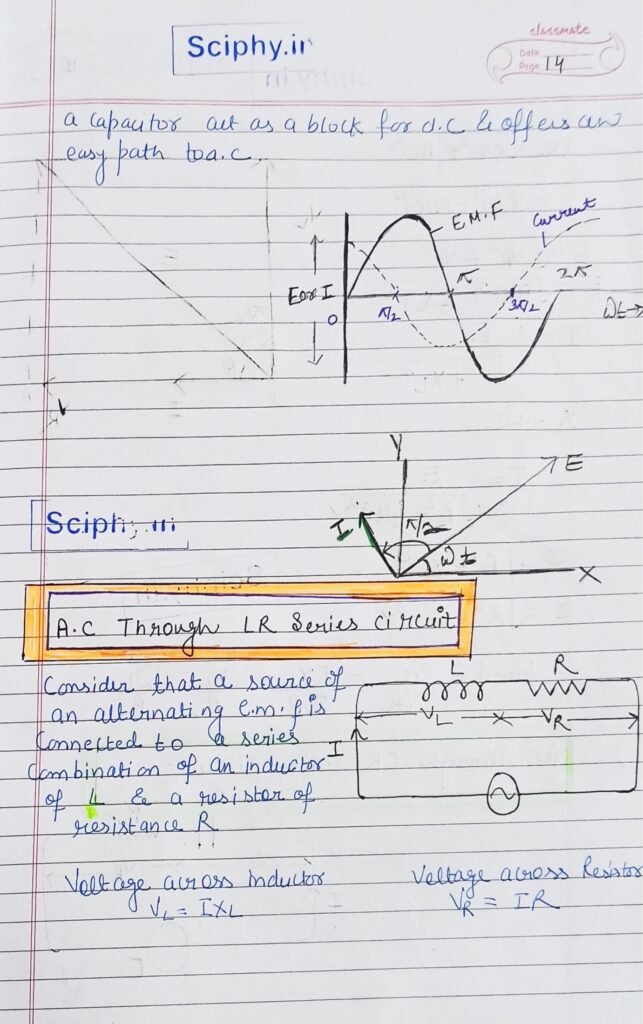 Sciphy.in
classmate
Date
Page 14
a capacitor act as a block for d.c & offers an
easy path to a.c.
E.M.F
Current
E or I
O
π/2
π
3π/2
2π
ωt
Y
E
I
π/2
ωt
X
Sciphy.in
A.C Through LR Series circuit
Consider that a source of
an alternating e.m.f is
connected to a series
combination of an inductor
of L & a resistor of
resistance R
L R
VL VR
I
Voltage across inductor
VL = IXL
Voltage across Resistor
VR = IR